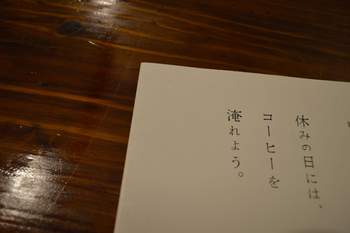 休みの日には、
コーヒーを
淹れよう。